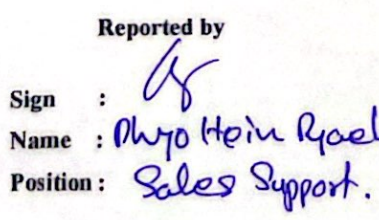 Reported by
Sign :
Name : Phyo Hein
Position : Sales Support.